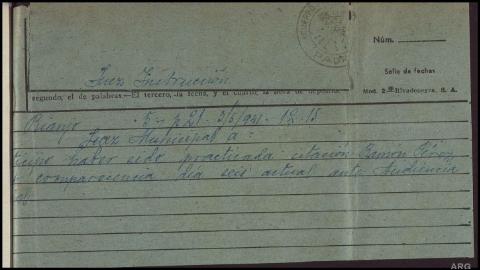 Núm.
Sello de fechas
Juez Instrucción
segundo, el de palabras.—El tercero, la fecha, y el cuarto, la hora de depósito.
Mod. 2.-Rivadeneyra, S. A.
Rianjo 5 - p 21 - 3/5/941 - 12-15
Juez Municipal a =
haber sido practicada citación Ramon
comparecencia dia seis actual ante Audiencia
ARG